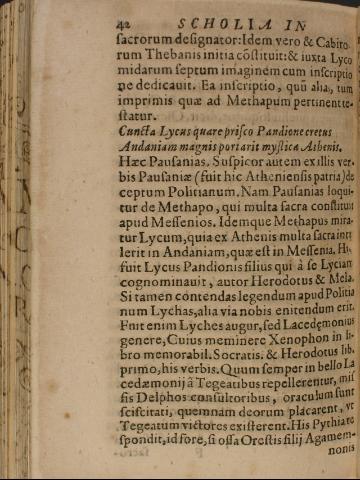 42 SCHOLIA IN
sacrorum designator: Idem vero & Cabiro-
rum Thebanis initia cōstituit: & iuxta Lyco
midarum septum imaginem cum inscriptio
ne dedicauit. Ea inscriptio, quū alia, tum
imprimis quæ ad Methapum pertinent te-
statur.
Cuncta Lycus quare prisco Pandione cretus
Andaniam magnis portarit mystica Athenis.
Hæc Pausanias. Suspicor autem ex illis ver-
bis Pausaniæ (fuit hic Atheniensis patria) de
ceptum Politianum. Nam Pausanias loqui-
tur de Methapo, qui multa sacra constituit
apud Messenios. Idemque Methapus mira-
tur Lycum, quia ex Athenis multa sacra intu
lerit in Andaniam, quæ est in Messenia. Hic
fuit Lycus Pandionis filius qui à se Lyciam
cognominauit, autor Herodotus & Mela.
Si tamen contendas legendum apud Politia
num Lychas, alia via nobis enitendum erit.
Fuit enim Lyches augur, sed Lacedęmonius
genere, Cuius meminere Xenophon in li-
bro memorabil. Socratis. & Herodotus lib.
primo, his verbis. Quum semper in bello La
cedæmonij à Tegeatibus repellerentur, mis
sis Delphos consultoribus, oraculum sunt
sciscitati, quemnam deorum placarent, vt
Tegeatum victores existerent. His Pythia re
spondit, id fore, si ossa Orestis filij Agamem-
nonis